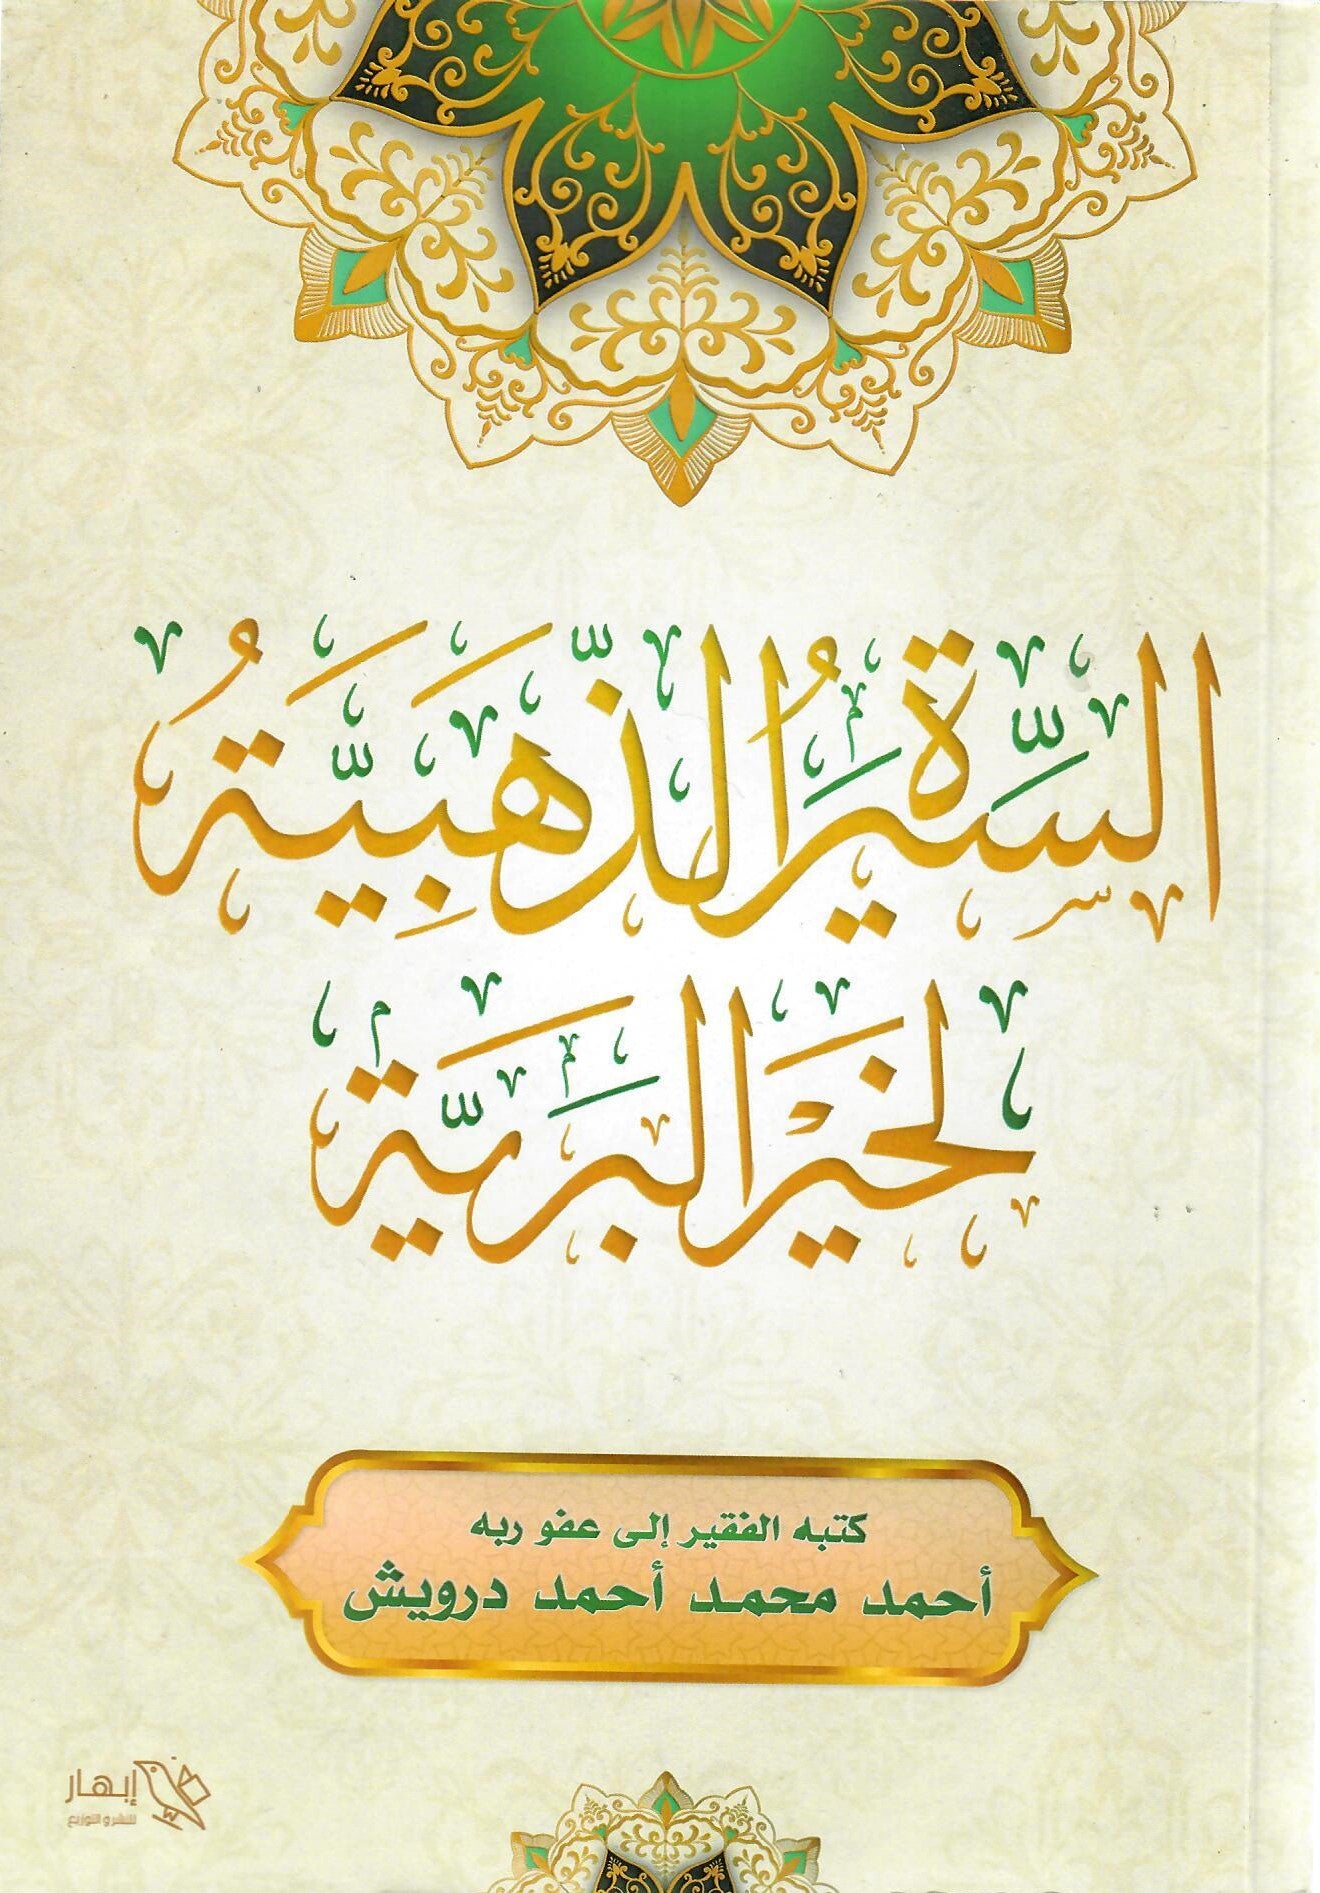 السِّيَرةُ الذَّهَبِيَّةُ
لخَيرِ البَرَيَّة
كتبه الفقير إلى عفو ربه
أحمد محمد أحمد درويش
إبهار
للنشر و التوزيع